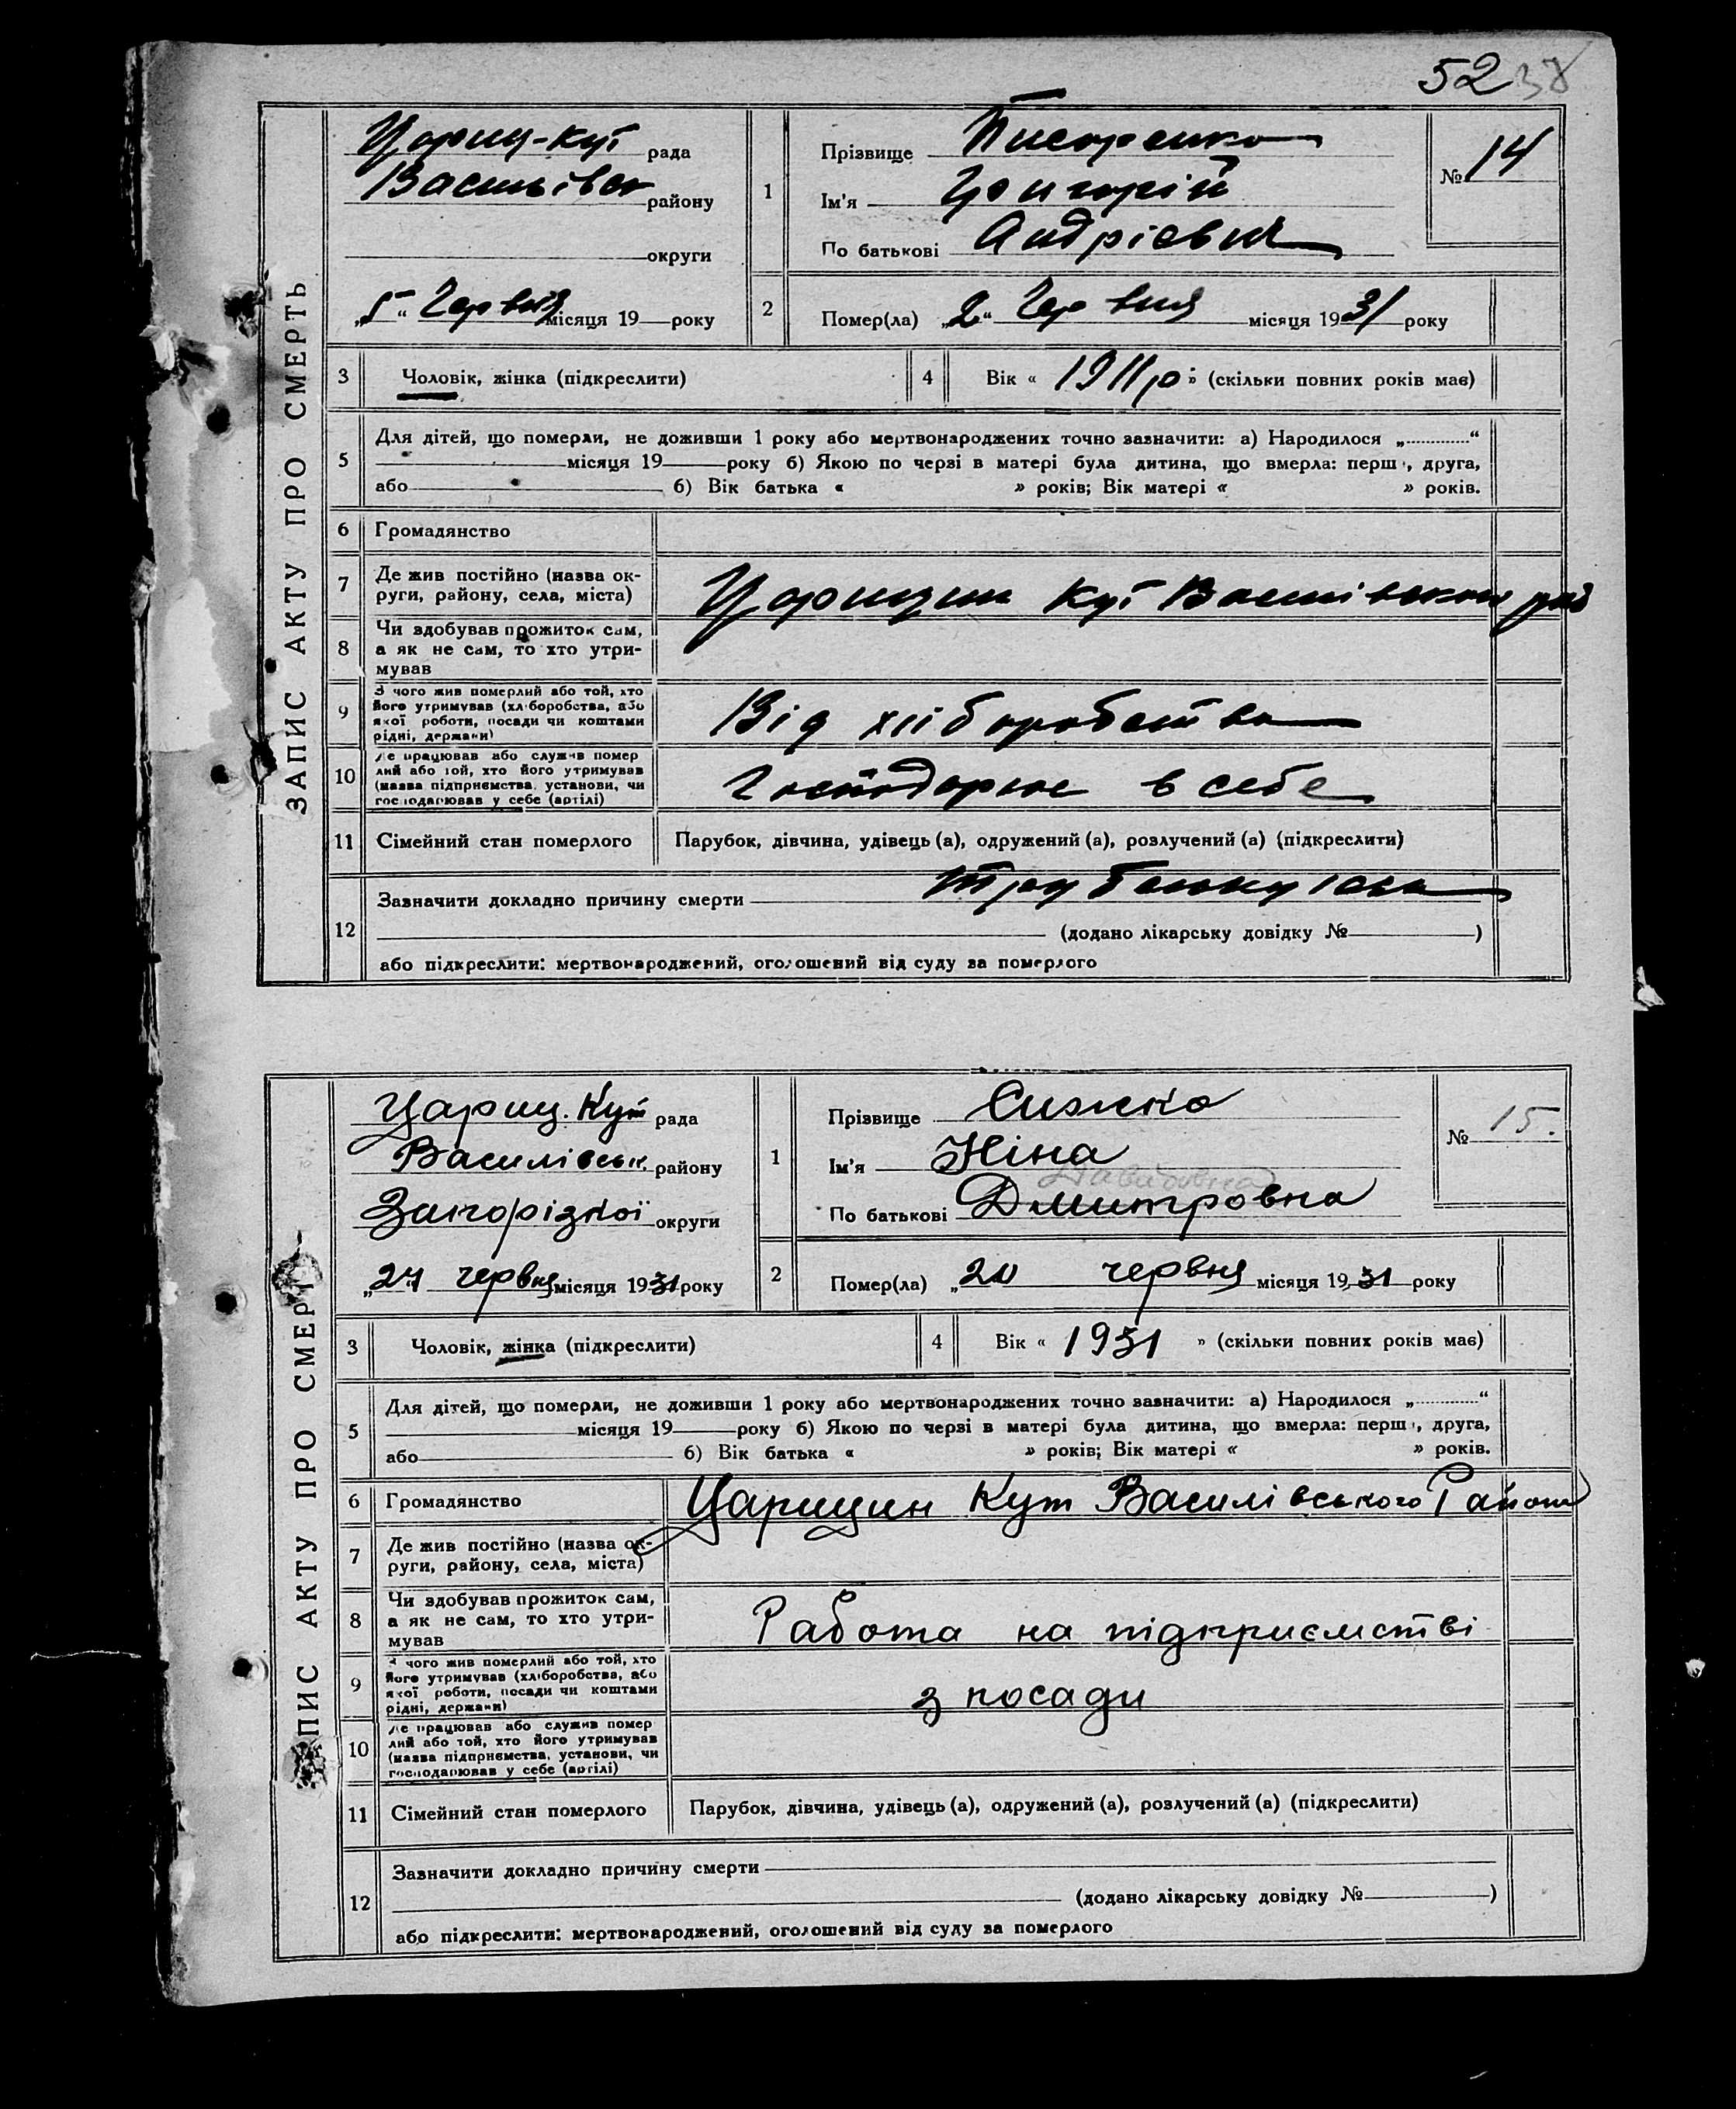 52 38
ЗАПИС АКТУ ПРО СМЕРТЬ
Цариц-Кут рада
Васильівск району
округи
„5“ Червня місяця 19 року
1
Прізвище Писаренко
Ім'я Григорій
По батькові Андрієвич
№ 14
2
Помер(ла) „2“ Червня місяця 1931 року
3 Чоловік, жінка (підкреслити)
4 Вік « 1911 р » (скільки повних років має)
5 Для дітей, що померли, не доживши 1 року або мертвонароджених точно зазначити: а) Народилося „............“
місяця 19 року б) Якою по черзі в матері була дитина, що вмерла: перша, друга,
або б) Вік батька « » років; Вік матері « » років.
6 Громадянство
7 Де жив постійно (назва ок-
руги, району, села, міста)
Царицин Кут Васильівского рай
8 Чи здобував прожиток сам,
а як не сам, то хто утри-
мував
9 З чого жив померлий або той, хто
його утримував (хліборобства, або
якої роботи, посади чи коштами
рідні, держави)
Від хліборобства
10 Де працював або служив помер
лий або той, хто його утримував
(назва підприємства, установи, чи
господарював у себе (артілі)
Господарює в себе
11 Сімейний стан померлого Парубок, дівчина, удівець (а), одружений (а), розлучений (а) (підкреслити)
12 Зазначити докладно причину смерти
(додано лікарську довідку № )
або підкреслити: мертвонароджений, оголошений від суду за померлого
ПИС АКТУ ПРО СМЕРТ
Цариц. Кут рада
Василівськ. району
Запорізької округи
„27 червня місяця 1931 року
1
Прізвище Сижко
Ім'я Ніна
Давидовна
По батькові Дмитровна
№ 15.
2
Помер(ла) „20 червня місяця 1931 року
3 Чоловік, жінка (підкреслити)
4 Вік « 1931 » (скільки повних років має)
5 Для дітей, що померли, не доживши 1 року або мертвонароджених точно зазначити: а) Народилося „............“
місяця 19 року б) Якою по черзі в матері була дитина, що вмерла: перша, друга,
або б) Вік батька « » років; Вік матері « » років.
6 Громадянство Царицин Кут Василівського Району
7 Де жив постійно (назва ок-
руги, району, села, міста)
8 Чи здобував прожиток сам,
а як не сам, то хто утри-
мував
Работа на підприємстві
9 З чого жив померлий або той, хто
його утримував (хліборобства, або
якої роботи, посади чи коштами
рідні, держави)
з посади
10 Де працював або служив помер
лий або той, хто його утримував
(назва підприємства, установи, чи
господарював у себе (артілі)
11 Сімейний стан померлого Парубок, дівчина, удівець (а), одружений (а), розлучений (а) (підкреслити)
12 Зазначити докладно причину смерти
(додано лікарську довідку № )
або підкреслити: мертвонароджений, оголошений від суду за померлого